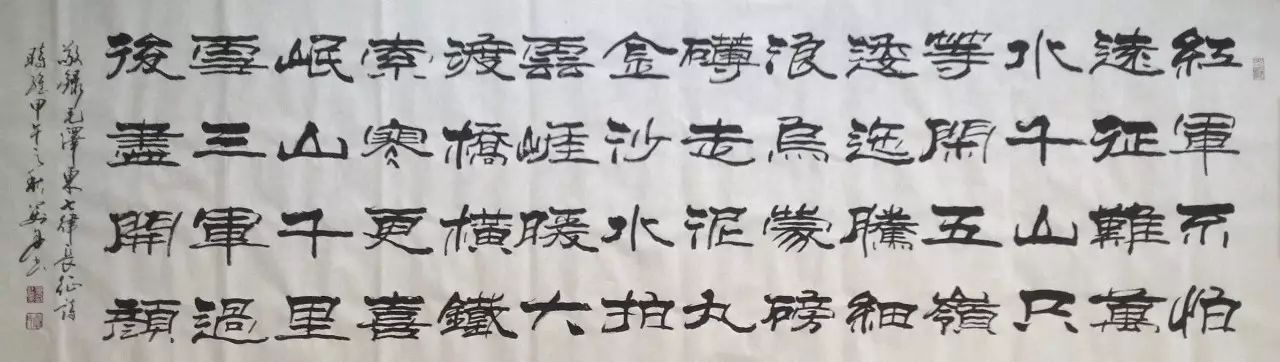 紅軍不怕
遠征難萬
水千山只
等閑五嶺
逶迤騰細
浪烏蒙磅
礴走泥丸
金沙水拍
雲崖暖大
渡橋橫鐵
索寒更喜
岷山千里
雪三軍過
後盡開顏
敬錄毛澤東七律長征詩
時維甲午之秋書